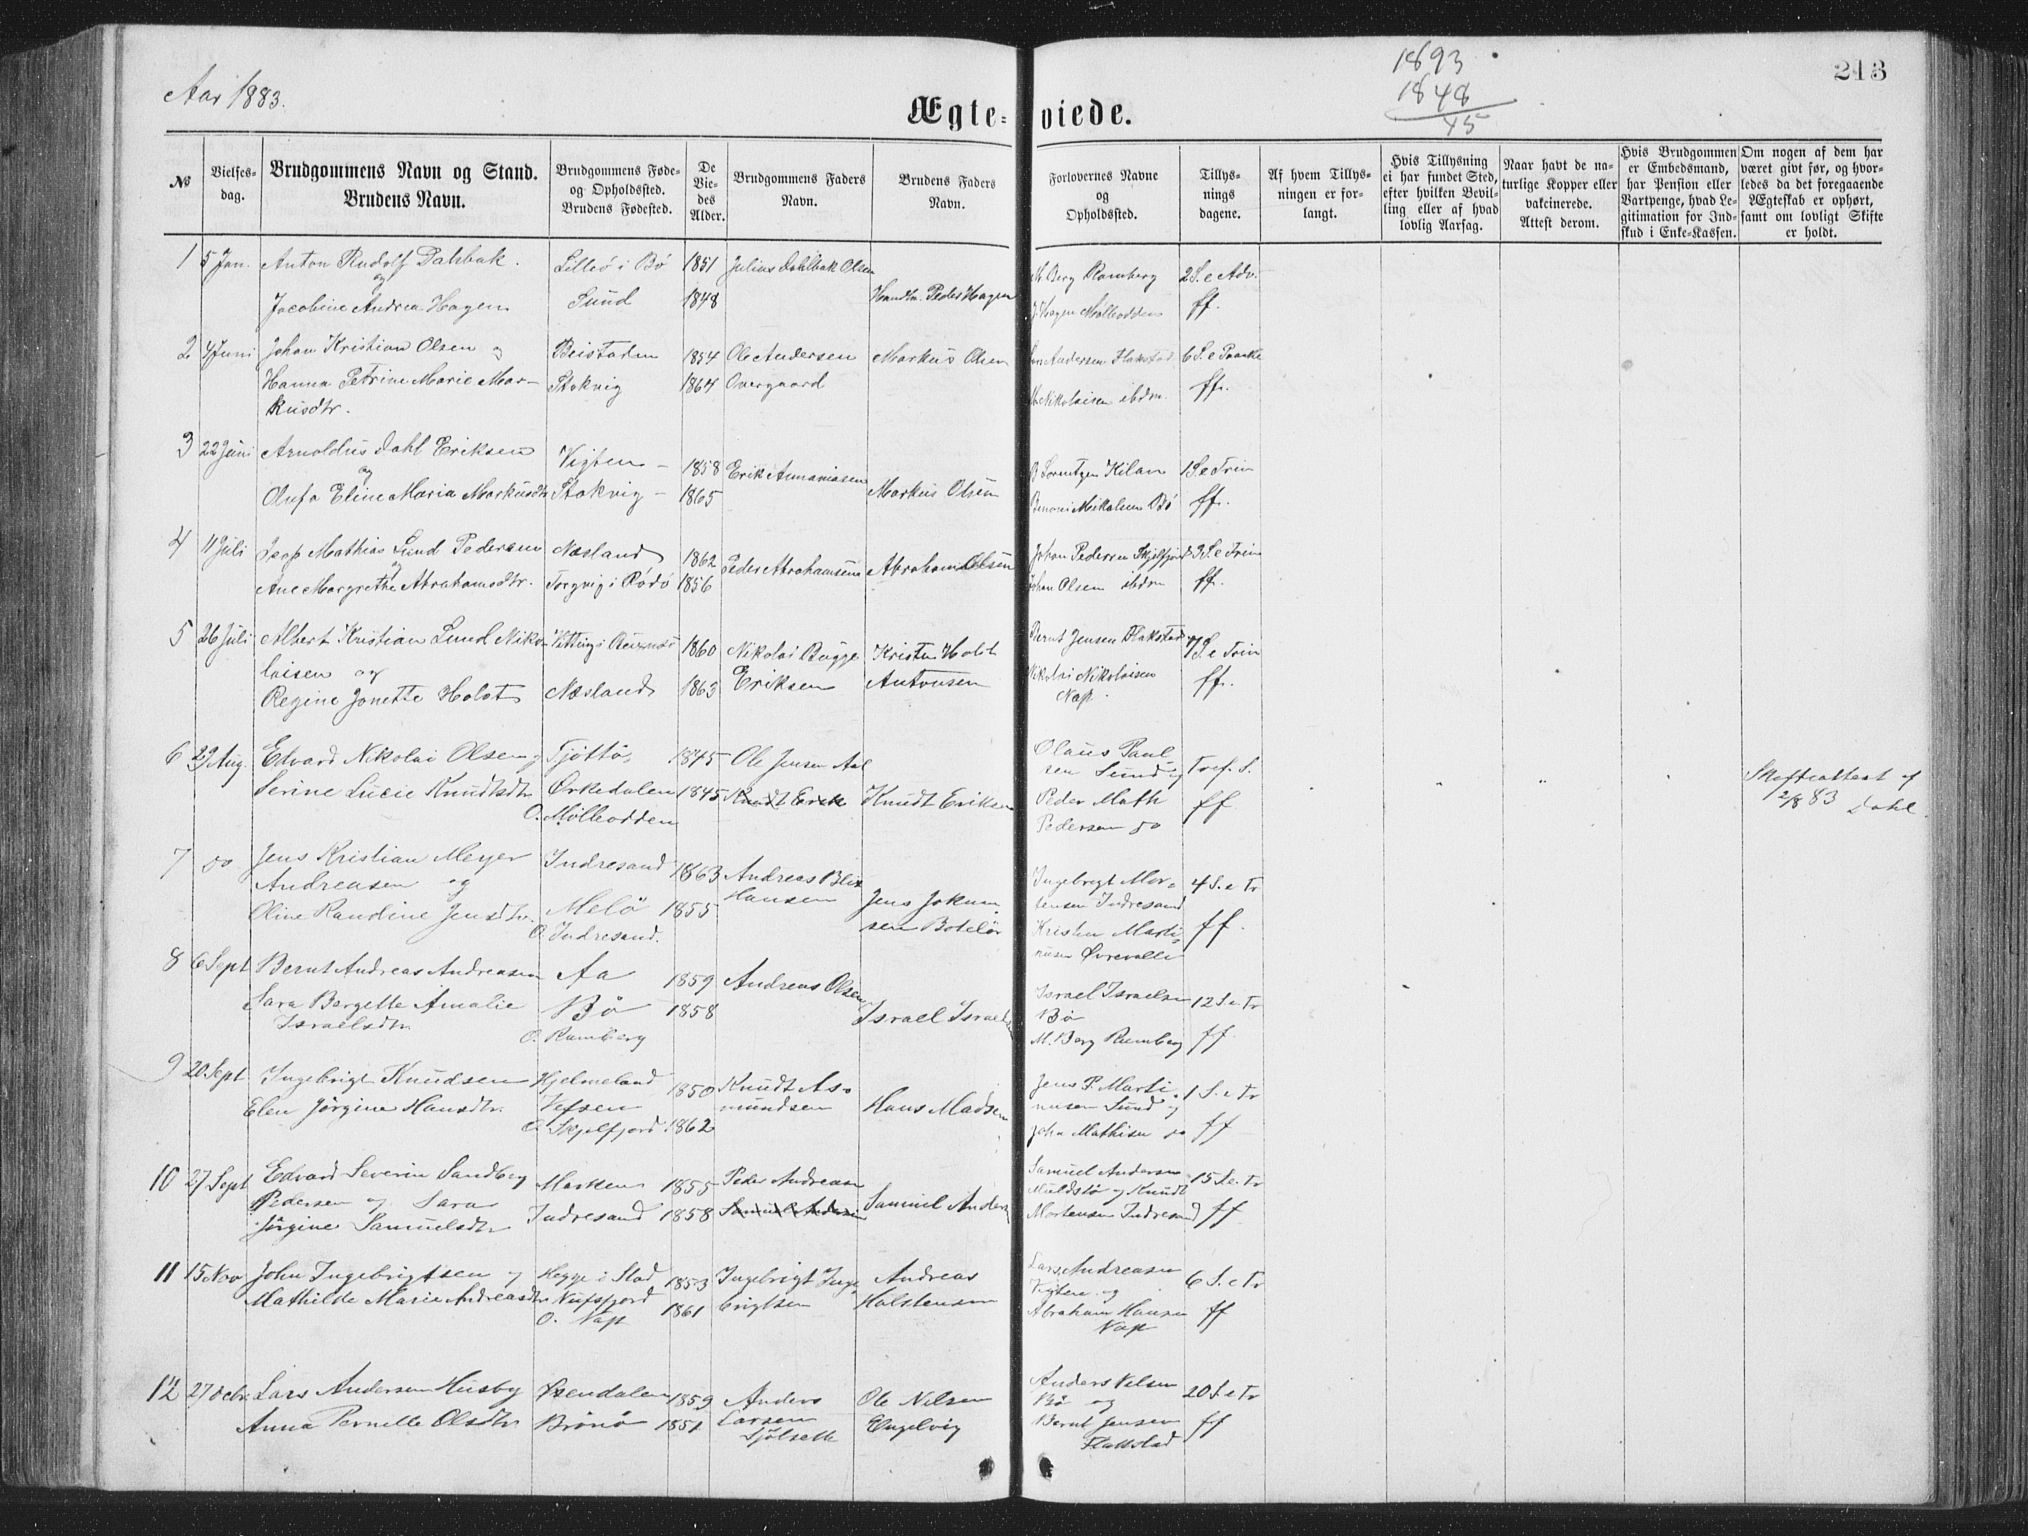 Aar 1883.
1893
1848
45
213
Ægte-viede.
№
Vielses-dag.
Brudgommens Navn og Stand.
Brudens Navn.
Brudgommens Føde- og Opholdssted.
Brudens Fødested.
De Vie-des Alder.
Brudgommens Faders Navn.
Brudens Faders Navn.
Forlovernes Navne og Opholdssted.
Tillys-nings dagene.
Af hvem Tillys-ningen er for-langt.
Hvis Tillysning ei har fundet Sted, efter hvilken Bevil-ling eller af hvad lovlig Aarsag.
Naar havt de na-turlige Kopper eller vakcinerede. Attest derom.
Hvis Brudgommen er Embedsmand, har Pension eller Vartpenge, hvad Le-gitimation for Ind-skud i Enke-Kassen.
Om nogen af dem har været givt før, og hvor-ledes da det foregaaende Ægteskab er ophørt, samt om lovligt Skifte er holdt.
1 5 Jan. Anton Rudolf Dahbak. Lilleö i Bö 1851 Julius Dahlbak Olsen M. Berg Ramberg 2 S. e Adv.
og
Jacobine Andrea Hagen Sund 1848 Handlm. Peder Hagen J. Hagen Mölleodden ff.
2 4 Juni Johan Kristian Olsen og Beistaden 1854 Ole Andersen Markus Olsen Andersen Flakstad 6 S. e Paaske
Hanna Petrine Marie Mar- Stokvig 1864 Overgaard Nikolaisen ibdm. ff.
kusdtr.
3 22 Juni Arnoldus Dahl Eriksen Vigten - 1858 Erik Annaniasen B Lorentzen Kilan 1 S. e Trin
og
Olufa Eline Maria Markusdtr Stokvig - 1865 Markus Olsen Benoni Mikalsen Bö ff.
4 11 Juli Isop Mathias Lund Pedersen Næsland 1862 Peder Abrahamsen Abraham Olsen Johan Pedersen Skjelfjord 3 S. e Trin
og
Ane Margrethe Abrahamsdtr. Torgvig i Rödö 1856 Johan Olsen ibdm ff.
5 26 Juli Albert Kristian Lund Niko- 1860 Nikolai Bugge Kristen Holst Bernt Jensen Flakstad og 7 S. e Trin
laisen og Eriksen Antonsen Nikolai Nikolaisen
Regine Jonette Holst Næsland 1863 Nap. ff.
6 29 Aug. Edvard Nikolai Olsen og Tjöttö 1845 Ole Jensen Aal Olaus Paul-
sen Sund og Tref. S.
Serine Lucie Knudtsdtr Orkedalen 1845 Knudt Erik Knudt Eriksen Peder Math ff
O. Mölleodden Pedersen do
Skifteattest af
2/8 83 Dahl.
7 do Jens Kristian Meyer Indresand 1863 Andreas Blix Ingebrigt Mor- 4 S. e Tr
Andreasen og Hansen Jens Jokum- tensen Indresand
Oline Randine Jensdtr. Melö 1855 sen Bolelör Kristen Marti- ff.
O. Indresand. nusen Övrevalle
8 6 Sept Bernt Andreas Andreasen Aa 1859 Andreas Olsen Israel Israelsen 12 S. e Tr
Sara Bergette Amalie Bö 1858 Israel Israels Bö
Israelsdtr O. Ramberg M. Berg Ramberg ff.
9 20 Sept Ingebrigt Knudsen Hjelmeland 1850 Knudt As- Jens P. Marti- 1 S. e Tr
Elen Jörgine Hansdtr. Vefsen mundsen Hans Madsen nusen Sund og
O. Skjelfjord 1862 John Mathisen do ff
10 27 Sept Edvard Severin Sandberg Marken 1855 Peder Andreasen Samuel Andersen 15 S. e Tr
Pedersen og Sara Mieldstö og Knudt
Jörgine Samuelsdtr Indresand 1858 Samuel Andersen Samuel Anders Mortensen Indresand ff
11 15 Nov John Ingebrigtsen og Hegge i Stad 1853 Ingebrigt Inge- Andreas Lars Andreasen 6 S. e Tr
Mathilde Marie Andreasdtr Nufsfjord 1861 brigtsen Halstensen Vigten og
O. Nap Abraham Hansen ff
Nap
12 27 Decbr. Lars Andersen Husby Öxendalen 1859 Anders Ole Nilsen Anders Nilsen 20 S. e Tr
Anna Pernelle Olsdtr Brönö 1851 Larsen Engelvig Bö og
Sjölsette Bernt Jensen ff
Flakstad